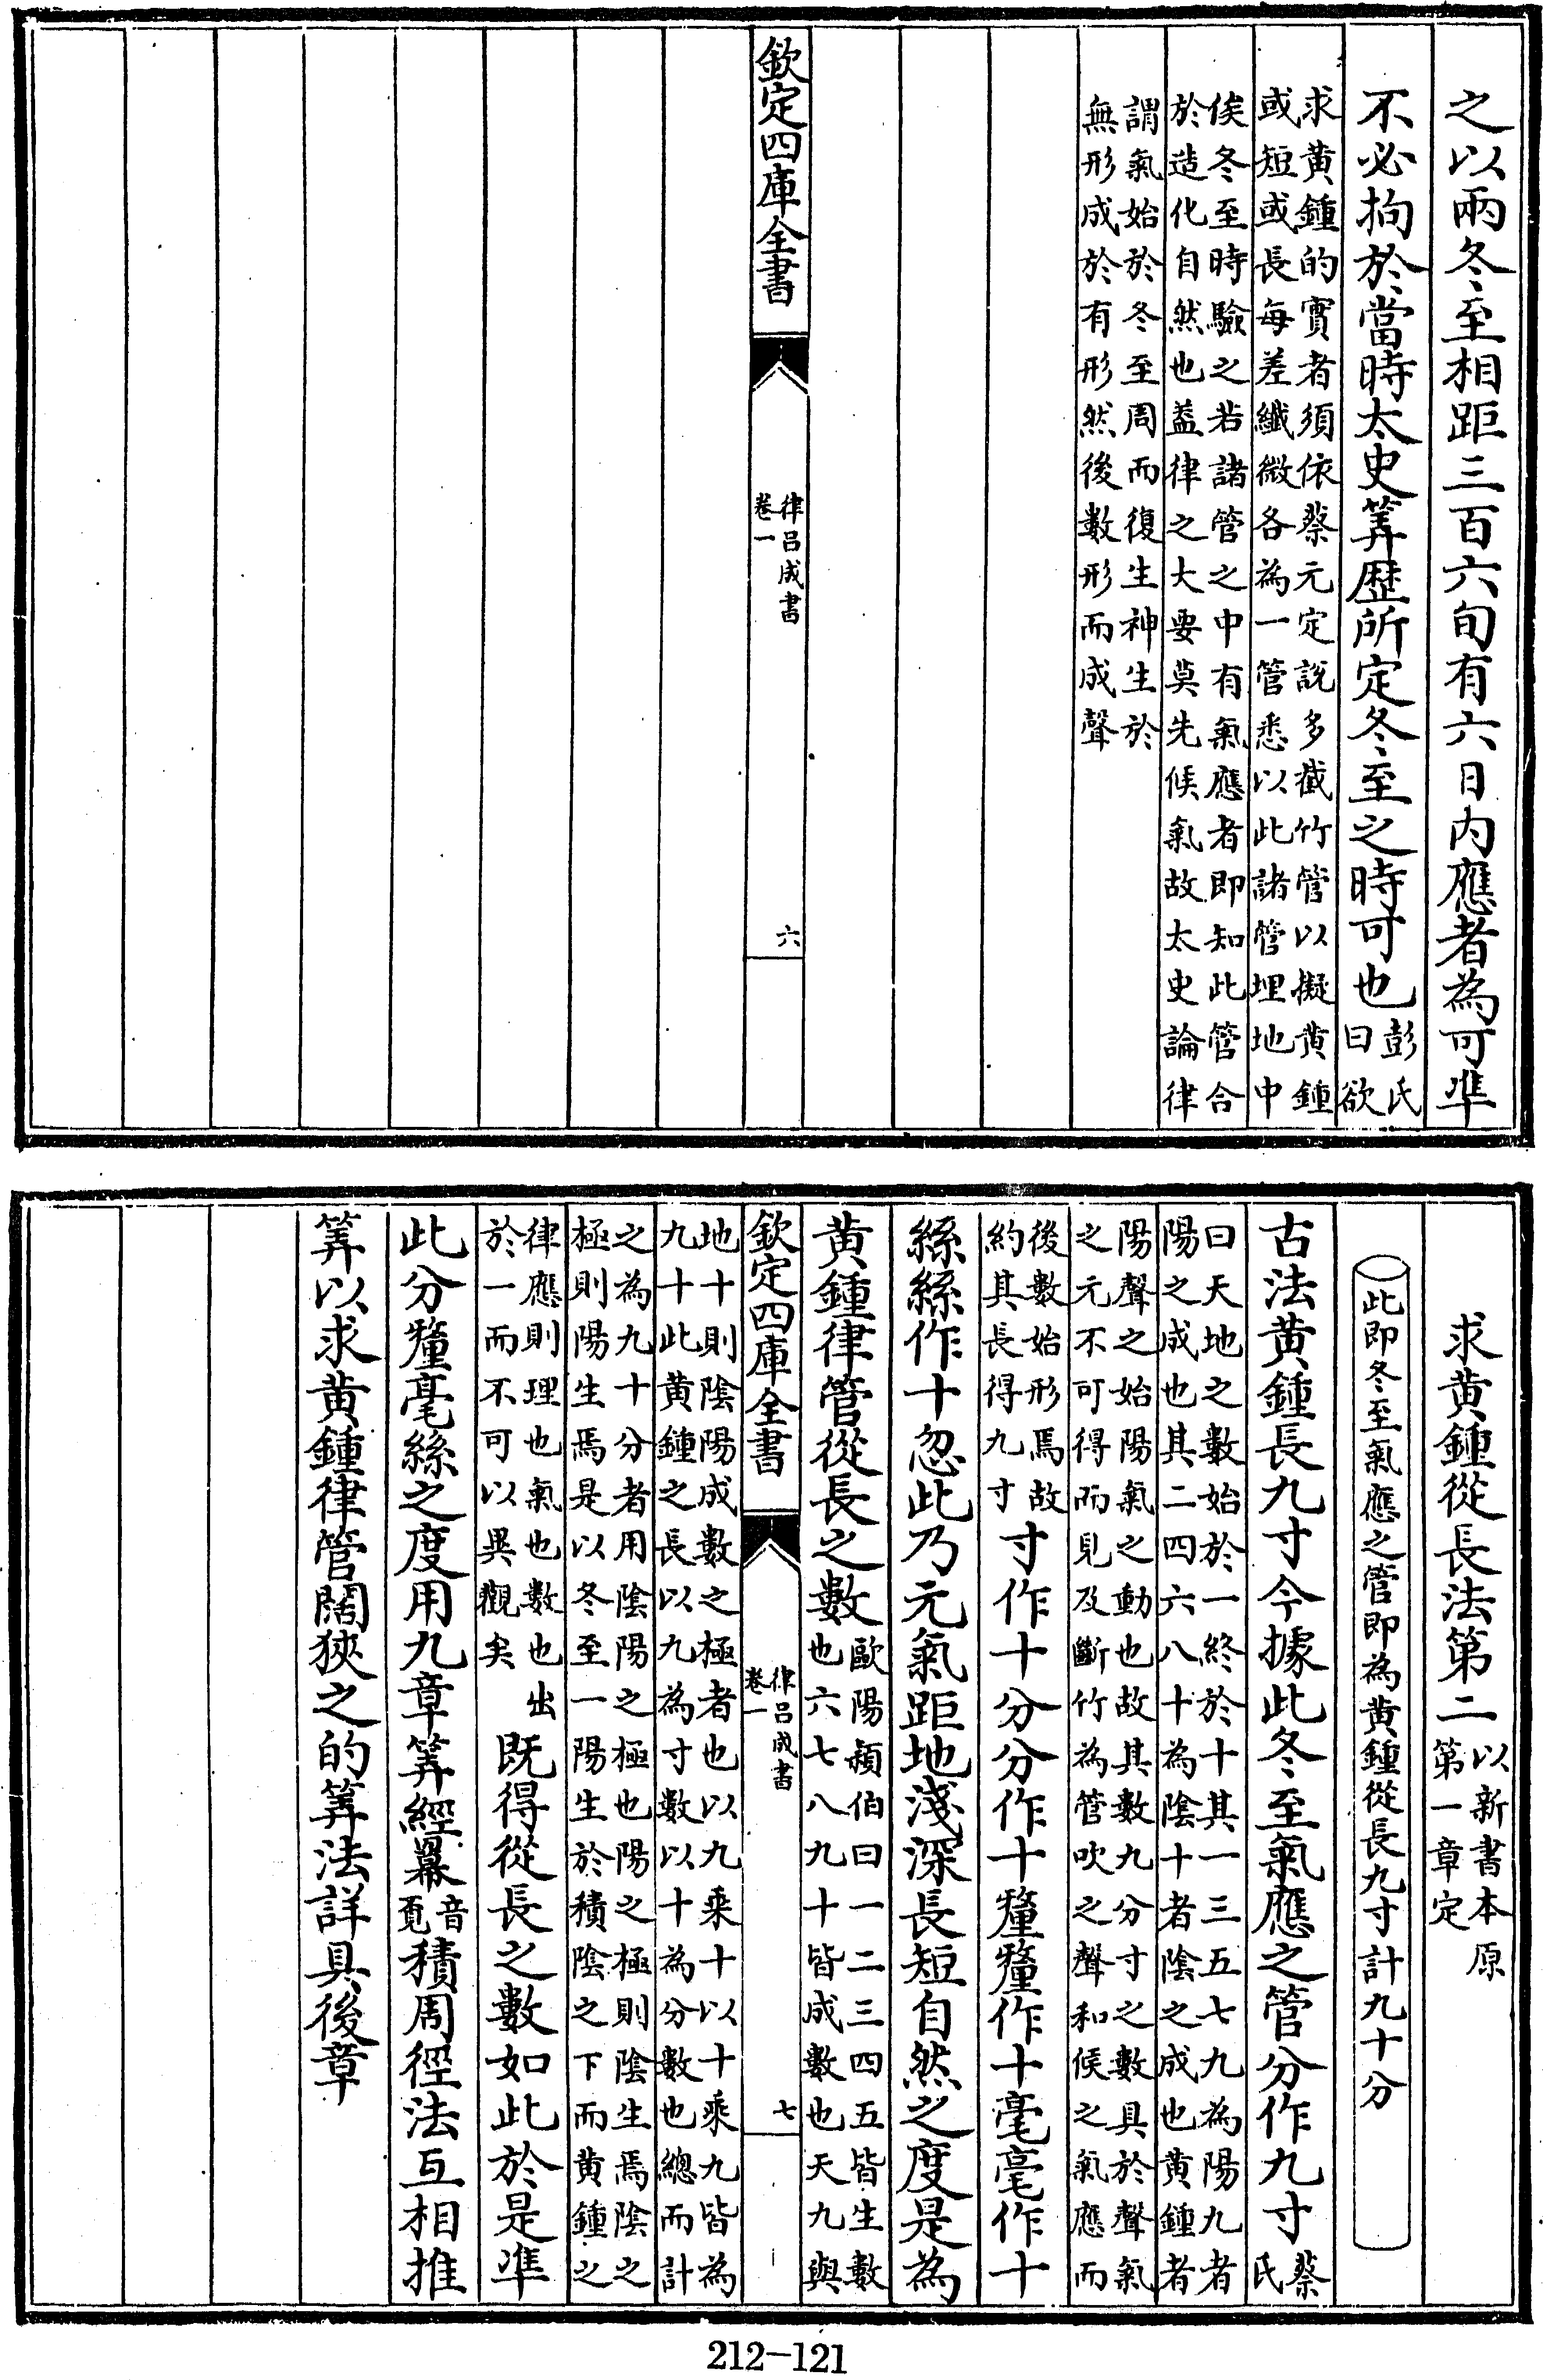 之以兩冬至相距三百六旬有六日内應者為可凖
不必拘於當時太史筭歴所定冬至之時可也
彭氏
曰欲
求黄鍾的實者須依蔡元定說多截竹管以擬黄鍾
或短或長每差纖微各為一管悉以此諸管埋地中
俟冬至時驗之若諸管之中有氣應者即知此管合
於造化自然也葢律之大要莫先候氣故太史論律
謂氣始於冬至周而復生神生於
無形成於有形然後數形而成聲
欽定四庫全書
律吕成書
卷一
六
求黄鍾從長法第二
以新書本原
第一章定
此即冬至氣應之管即為黄鍾從長九寸計九十分
古法黄鍾長九寸今據此冬至氣應之管分作九寸
蔡
氏
曰天地之數始於一終於十其一三五七九為陽九者
陽之成也其二四六八十為陰十者陰之成也黄鍾者
陽聲之始陽氣之動也故其數九分寸之數具於聲氣
之元不可得而見及斷竹為管吹之聲和候之氣應而
後數始形焉故
約其長得九寸
寸作十分分作十釐釐作十毫毫作十
絲絲作十忽此乃元氣距地淺深長短自然之度是為
黄鍾律管從長之數
歐陽頴伯曰一二三四五皆生數
也六七八九十皆成數也天九與
欽定四庫全書
律吕成書
卷一
七
地十則陰陽成數之極者也以九乘十以十乘九皆為
九十此黄鍾之長以九為寸數以十為分數也總而計
之為九十分者用陰陽之極也陽之極則陰生焉陰之
極則陽生焉是以冬至一陽生於積陰之下而黄鍾之
律應則理也氣也數也出
於一而不可以異觀矣
既得從長之數如此於是凖
此分釐毫絲之度用九章筭經羃
音
覓
積周徑法互相推
筭以求黄鍾律管闊狹之的筭法詳具後章
212-121